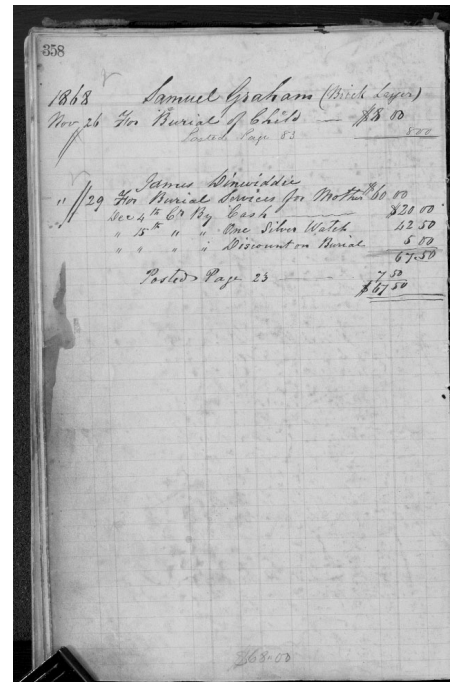 358
1868 Samuel Graham (Brick Layer)
Nov. 26 For Burial of Child — $8 00
Posted Page 83 800
James Dinwiddie
" 29 For Burial Services for Mother $60.00
Dec 4th Cr By Cash $20.00
" 15th " " One Silver Watch 42 50
" " " " Discount on Burial 5 00
67.50
Posted Page 23 — 7 50
$67 50
$68.00